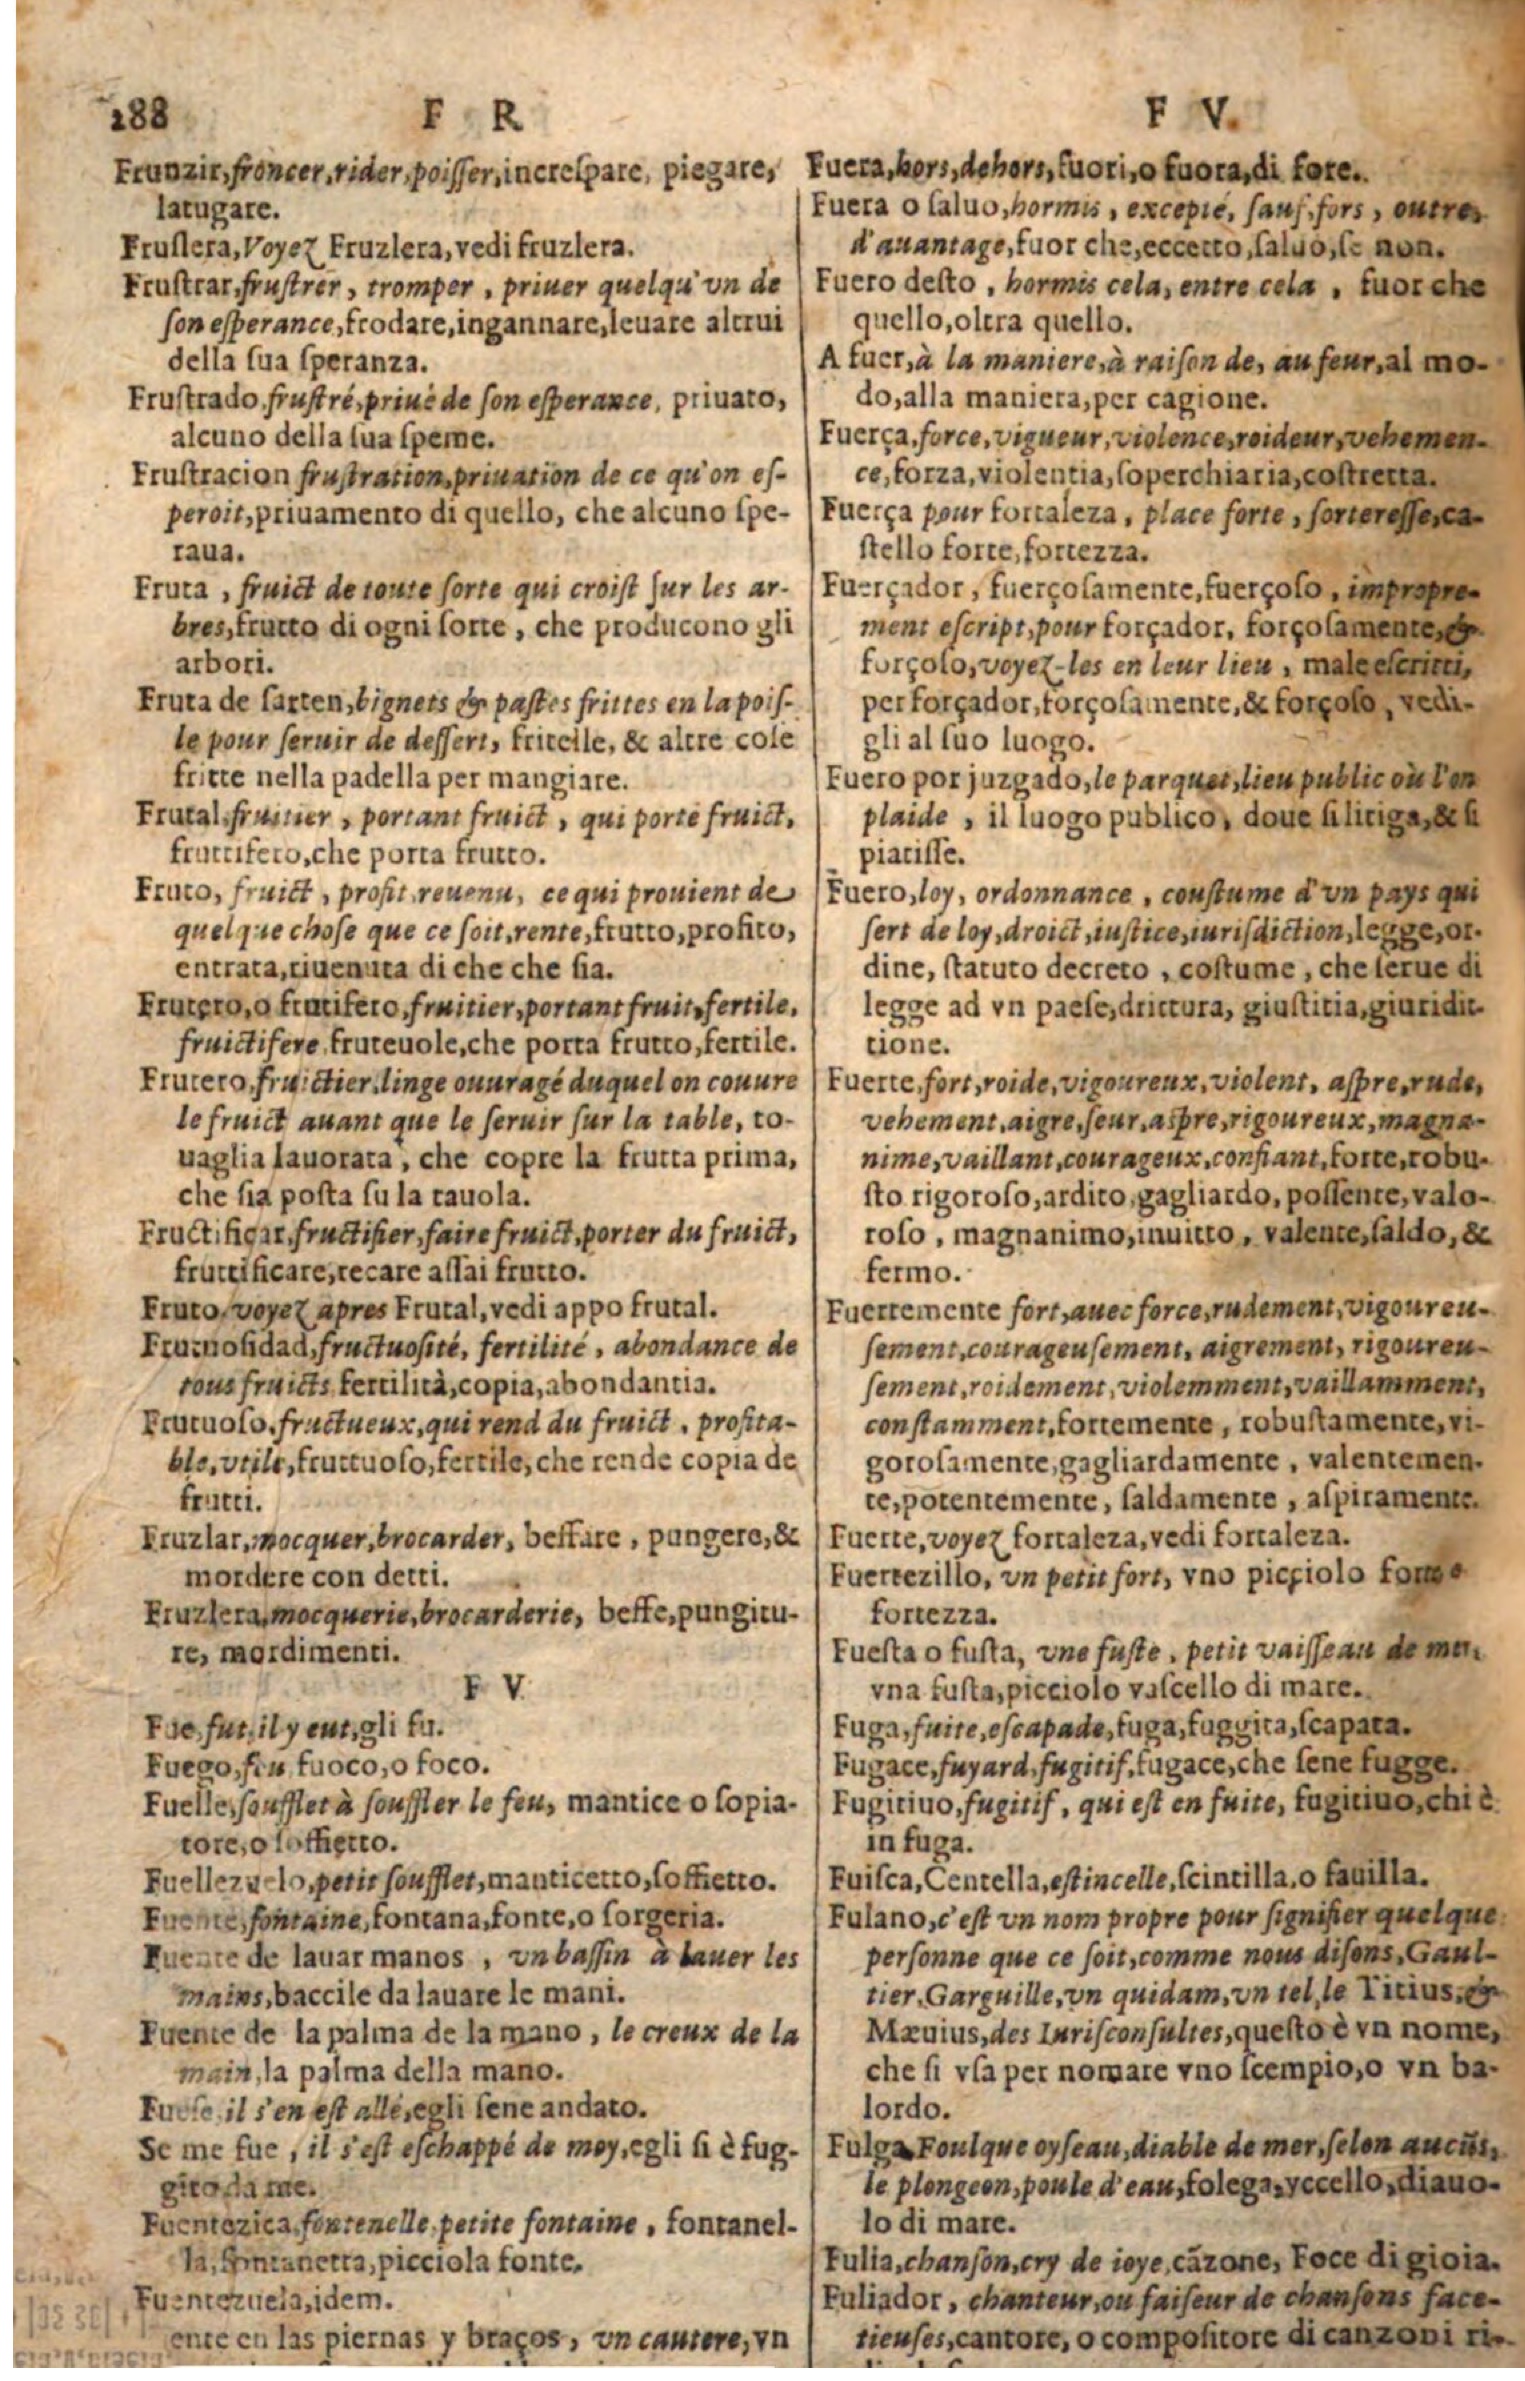 288 F R
Frunzir, froncer, rider, poisser, increſpare, piegare,
latugare.
Fruſlera, Voyez Fruzlera, vedi fruzlera.
Fruſtrar, fruſtrer, tromper, priuer quelqu'vn de
ſon eſperance, frodare, ingannare, leuare altrui
della ſua ſperanza.
Fruſtrado, fruſtré, priué de ſon eſperance, priuato,
alcuno della ſua ſpeme.
Fruſtracion fruſtration, priuation de ce qu'on eſ-
peroit, priuamento di quello, che alcuno ſpe-
raua.
Fruta, fruict de toute ſorte qui croiſt ſur les ar-
bres, frutto di ogni ſorte, che producono gli
arbori.
Fruta de ſarten, bignets & paſtes frittes en la poiſ-
le pour ſeruir de deſſert, fritelle, & altre coſe
fritte nella padella per mangiare.
Frutal, fruitier, portant fruict, qui porte fruict,
fruttifero, che porta frutto.
Fruto, fruict, profit, reuenu, ce qui prouient de
quelque choſe que ce ſoit, rente, frutto, profito,
entrata, riuenuta di che che ſia.
Frutero, o frutifero, fruitier, portant fruit, fertile,
fruictifere, fruteuole, che porta frutto, fertile.
Frutero, fruictier, linge ouuragé duquel on couure
le fruict auant que le ſeruir ſur la table, to-
uaglia lauorata, che copre la frutta prima,
che ſia poſta ſu la tauola.
Fructificar, fructifier, faire fruict, porter du fruict,
fruttificare, recare aſſai frutto.
Fruto, voyez apres Frutal, vedi appo frutal.
Frutuoſidad, fructuoſité, fertilité, abondance de
tous fruicts, fertilità, copia, abondantia.
Frutuoſo, fructueux, qui rend du fruict, profita-
ble, vtile, fruttuoſo, fertile, che rende copia de
frutti.
Fruzlar, mocquer, brocarder, beffare, pungere, &
mordere con detti.
Fruzlera, mocquerie, brocarderie, beffe, pungitu-
re, mordimenti.
F V
Fue, fut, il y eut, gli fu.
Fuego, feu, fuoco, o foco.
Fuelle, ſoufflet à ſouffler le feu, mantice o ſopia-
tore, o ſoffietto.
Fuellezuelo, petit ſoufflet, manticetto, ſoffietto.
Fuente, fontaine, fontana, fonte, o ſorgeria.
Fuente de lauar manos, vn baſſin à lauer les
mains, baccile da lauare le mani.
Fuente de la palma de la mano, le creux de la
main, la palma della mano.
Fueſe, il s'en eſt allé, egli ſene andato.
Se me fue, il s'eſt eſchappé de moy, egli ſi è fug-
gito da me.
Fuentezica, fontenelle, petite fontaine, fontanel-
la, fontanetta, picciola fonte.
Fuentezuela, idem.
ente en las piernas y braços, vn cautere, vn
F V.
Fuera, hors, dehors, fuori, o fuora, di fore.
Fuera o ſaluo, hormis, excepté, ſauf, fors, outre,
d'auantage, fuor che, eccetto, ſaluo, ſe non.
Fuero deſto, hormis cela, entre cela, fuor che
quello, oltra quello.
A fuer, à la maniere, à raiſon de, au feur, al mo-
do, alla maniera, per cagione.
Fuerça, force, vigueur, violence, roideur, vehemen-
ce, forza, violentia, ſoperchiaria, coſtretta.
Fuerça pour fortaleza, place forte, fortereſſe, ca-
ſtello forte, fortezza.
Fuerçador, fuerçoſamente, fuerçoſo, impropre-
ment eſcript, pour forçador, forçoſamente, &
forçoſo, voyez-les en leur lieu, male eſcritti,
per forçador, forçoſamente, & forçoſo, vedi-
gli al ſuo luogo.
Fuero por juzgado, le parquet, lieu public où l'on
plaide, il luogo publico, doue ſi litiga, & ſi
piatiſſe.
Fuero, loy, ordonnance, couſtume d'vn pays qui
ſert de loy, droict, iuſtice, iuriſdiction, legge, or-
dine, ſtatuto decreto, coſtume, che ſerue di
legge ad vn paeſe, drittura, giuſtitia, giuridit-
tione.
Fuerte, fort, roide, vigoureux, violent, aſpre, rude,
vehement, aigre, ſeur, aſpre, rigoureux, magna-
nime, vaillant, courageux, conſtant, forte, robu-
ſto rigoroſo, ardito, gagliardo, poſſente, valo-
roſo, magnanimo, inuitto, valente, ſaldo, &
fermo.
Fuertemente fort, auec force, rudement, vigoureu-
ſement, courageuſement, aigrement, rigoureu-
ſement, roidement, violemment, vaillamment,
conſtamment, fortemente, robuſtamente, vi-
goroſamente, gagliardamente, valentemen-
te, potentemente, ſaldamente, aſpiramente.
Fuerte, voyez fortaleza, vedi fortaleza.
Fuertezillo, vn petit fort, vno picciolo forte o
fortezza.
Fueſta o fuſta, vne fuſte, petit vaiſſeau de mer,
vna fuſta, picciolo vaſcello di mare.
Fuga, fuite, eſcapade, fuga, fuggita, ſcapata.
Fugace, fuyard, fugitif, fugace, che ſene fugge.
Fugitiuo, fugitif, qui eſt en fuite, fugitiuo, chi è
in fuga.
Fuiſca, Centella, eſtincelle, ſcintilla, o fauilla.
Fulano, c'eſt vn nom propre pour ſignifier quelque
perſonne que ce ſoit, comme nous diſons, Gaul-
tier, Garguille, vn quidam, vn tel, le Titius, &
Mæuius, des Iuriſconſultes, queſto è vn nome,
che ſi vſa per nomare vno ſcempio, o vn ba-
lordo.
Fulga, Foulque oyſeau, diable de mer, ſelon aucũs,
le plongeon, poule d'eau, folega, vccello, diauo-
lo di mare.
Fulia, chanſon, cry de ioye, cāzone, Foce di gioia.
Fuliador, chanteur, ou faiſeur de chanſons face-
tieuſes, cantore, o compoſitore di canzoni ri-